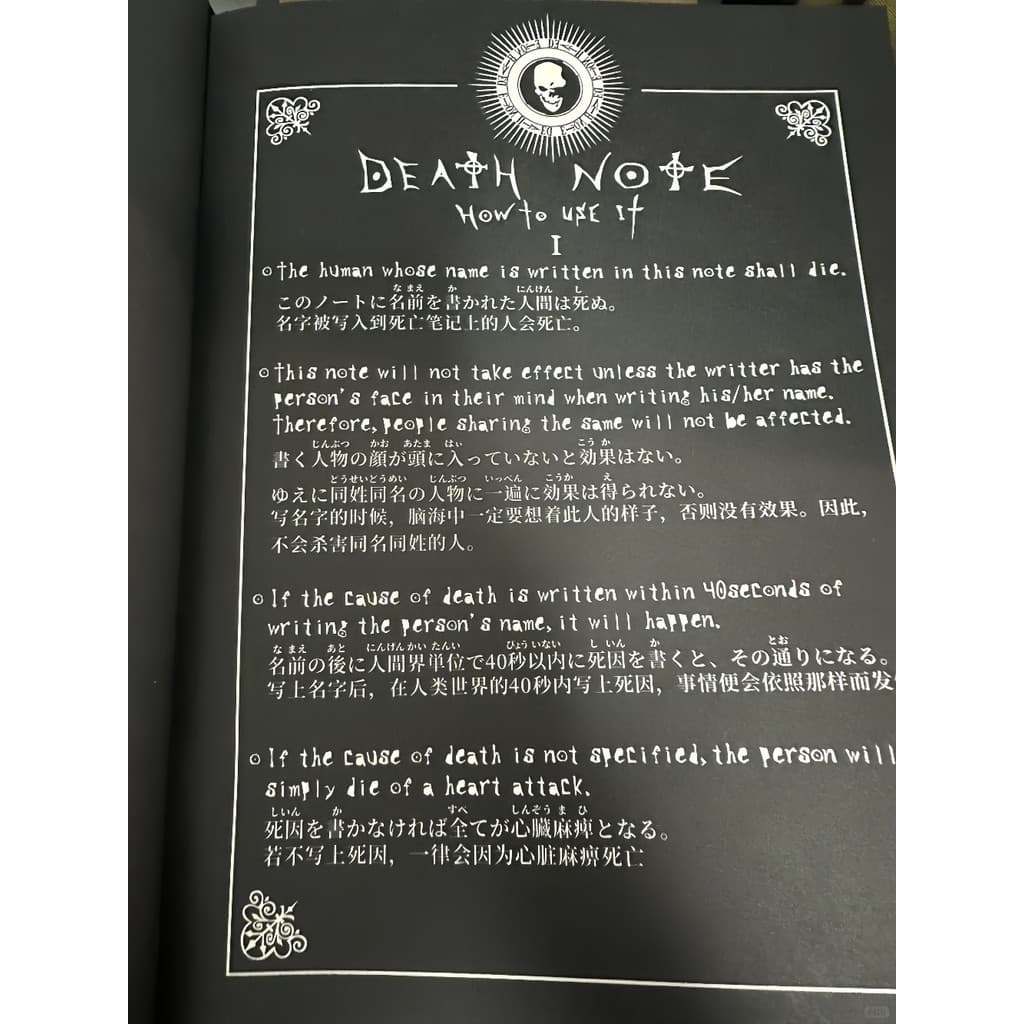 DEATH NOTE
How to use it
I
The human whose name is written in this note shall die.
このノートに名前を書かれた人間は死ぬ。
名字被写入到死亡笔记上的人会死亡。
This note will not take effect unless the writter has the
person's face in their mind when writing his/her name.
Therefore, people sharing the same will not be affected.
書く人物の顔が頭に入っていないと効果はない。
ゆえに同姓同名の人物に一遍に効果は得られない。
写名字的时候，脑海中一定要想着此人的样子，否则没有效果。因此，
不会杀害同名同姓的人。
If the cause of death is written within 40seconds of
writing the person's name, it will happen.
名前の後に人間界単位で40秒以内に死因を書くと、その通りになる。
写上名字后，在人类世界的40秒内写上死因，事情便会依照那样而发
If the cause of death is not specified, the person will
simply die of a heart attack.
死因を書かなければ全てが心臓麻痺となる。
若不写上死因，一律会因为心脏麻痹死亡